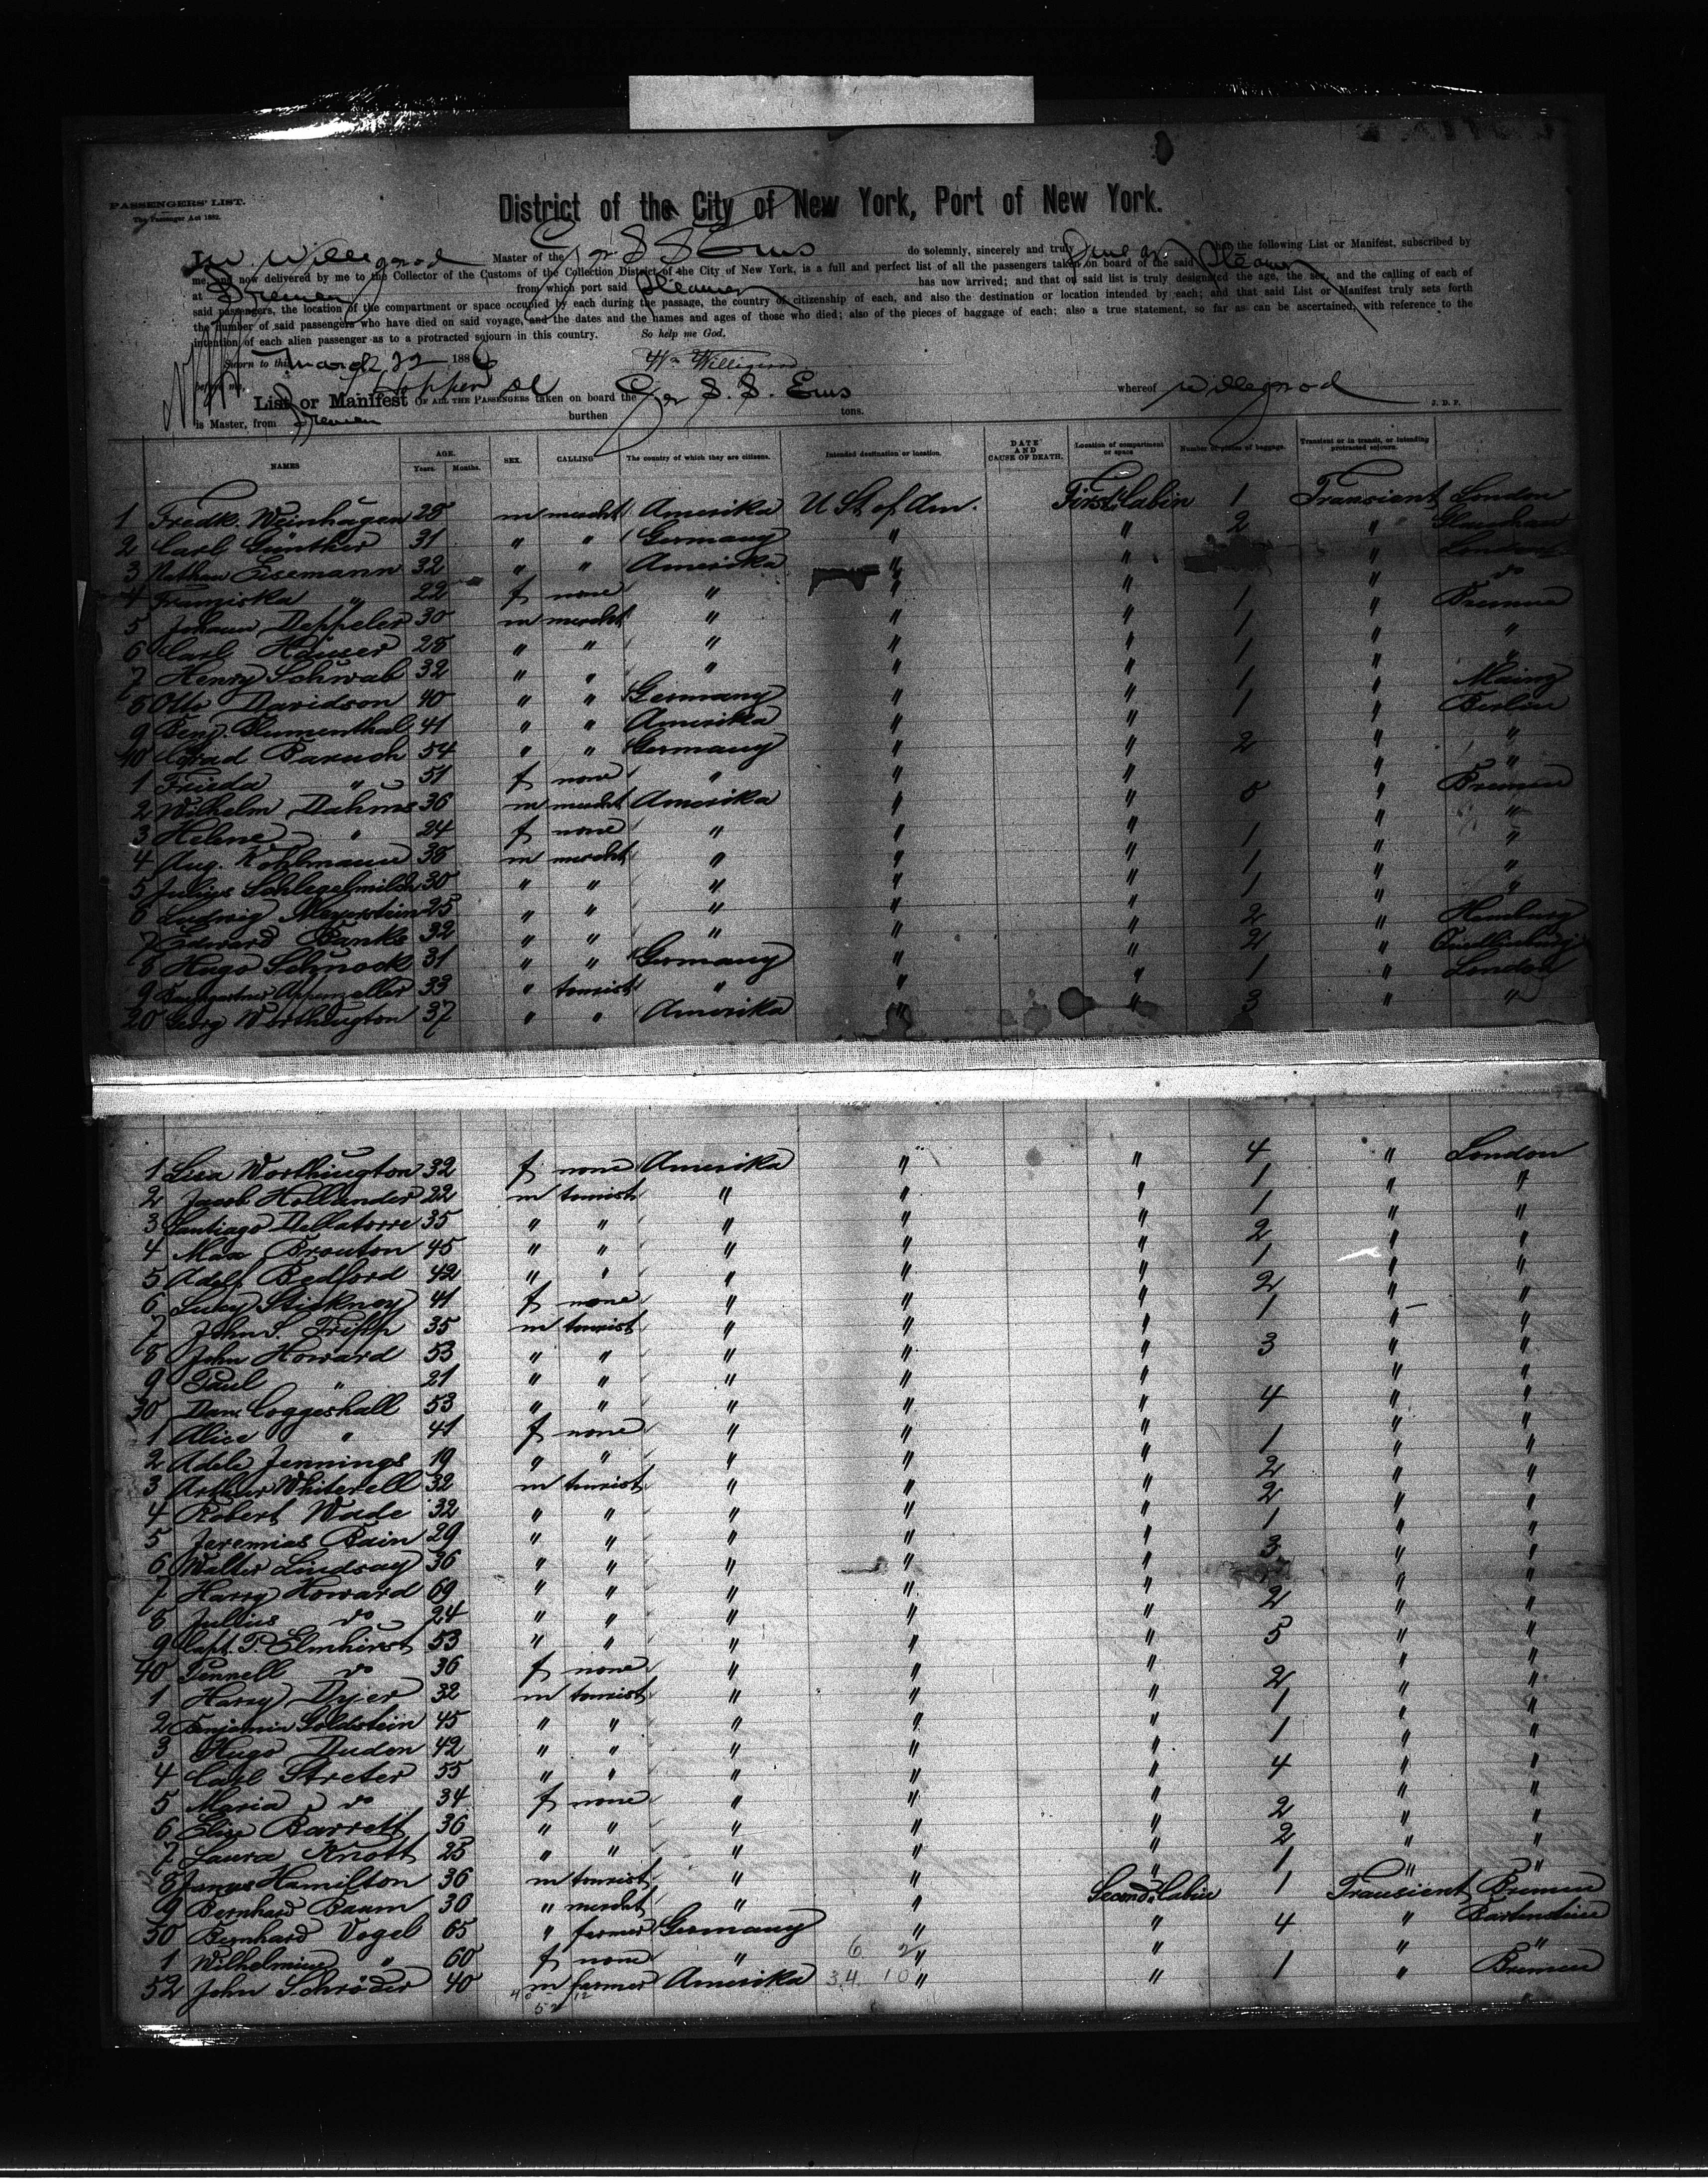 PASSENGERS' LIST.
The Passenger Act 1882.
District of the City of New York, Port of New York.
I, W Willigerod Master of the Ger S S Ems do solemnly, sincerely and truly that the following List or Manifest, subscribed by
me, and now delivered by me to the Collector of the Customs of the Collection District of the City of New York, is a full and perfect list of all the passengers taken on board of the said Steamer
at Bremen from which port said Steamer has now arrived; and that on said list is truly designated the age, the sex, and the calling of each of
said passengers, the location of the compartment or space occupied by each during the passage, the country of citizenship of each, and also the destination or location intended by each; and that said List or Manifest truly sets forth
the number of said passengers who have died on said voyage, and the dates and the names and ages of those who died; also of the pieces of baggage of each; also a true statement, so far as can be ascertained, with reference to the
intention of each alien passenger as to a protracted sojourn in this country. So help me God.
Sworn to this March 22 1886 Wm Willigerod
before me,
List or Manifest OF ALL THE PASSENGERS taken on board the Ger S. S. Ems whereof Willigerod
is Master, from Bremen burthen tons. J. D. P.
NAMES AGE. Years. Months. SEX. CALLING The country of which they are citizens. Intended destination or location. DATE AND CAUSE OF DEATH. Location of compartment or space Number of pieces of baggage. Transient or in transit, or intending protracted sojourn.
1 Fredk. Weinhagen 28 m mercht Amerika U St. of Am. First Cabin 1 Transient London
2 Carl Günther 31 " " Germany " " 2 " Glauchau
3 Nathan Eisemann 32 " " Amerika " " " London
4 Franziska " 22 f none " " " " do
5 Johann Deppeler 30 m mercht " " " 1 " Bremen
6 Carl Häuser 28 " " " " " 1 " "
7 Henry Schwab 32 " " " " " 1 " "
8 Otto Davidson 40 " " Germany " " 1 " Mainz
9 Benj. Blumenthal 41 " " Amerika " " 1 " Berlin
10 Baruch 54 " " Germany " " 2 " "
1 Frieda " 51 f none " " " " "
2 Wilhelm Dahms 36 m mercht Amerika " " 5 " Bremen
3 Helene " 24 f none " " " " "
4 Aug. Kohlmann 38 m mercht " " " 1 " "
5 Julius Schlegelmilch 30 " " " " " 1 " "
6 Ludwig Meyerstein 25 " " " " " 1 " "
7 Edward Banks 32 " " " " " 2 " Hamburg
8 Hugo Schnock 31 " " Germany " " 2 " Quedlinburg
9 Baumgartner Appenzeller 33 " tourist " " " 1 " London
20 Georg Worthington 37 " " Amerika " " 3 " "
1 Liza Worthington 32 f none Amerika " " 4 " London
2 Jacob Hollander 22 m tourist " " " 1 " "
3 Santiago Dellatorre 35 " " " " " 1 " "
4 Max Brouton 45 " " " " " 2 " "
5 Adolf Bedford 42 " " " " " 1 " "
6 Lucy Stickney 41 f none " " " 2 " "
7 John S. Tripp 35 m tourist " " " 1 " "
8 John Howard 53 " " " " " 3 " "
9 Paul " 21 " " " " " " "
30 Dan. Coggeshall 53 " " " " " 4 " "
1 Alice " 41 f none " " " " "
2 Adele Jennings 19 " " " " " 1 " "
3 Arthur Whiterell 32 m tourist " " " 2 " "
4 Robert Wade 32 " " " " " 2 " "
5 Jeremias Bain 29 " " " " " 1 " "
6 Walter Lindsay 36 " " " " " 3 " "
7 Harry Howard 69 " " " " " " "
8 Jullius do 24 " " " " " 2 " "
9 Capt. P. Elmhirst 53 " " " " " 5 " "
40 Pennell do 36 f none " " " " "
1 Harry Dyier 32 m tourist " " " 2 " "
2 Benjamin Goldstein 45 " " " " " 1 " "
3 Hugo Dudon 42 " " " " " 1 " "
4 Carl Streter 55 " " " " " 4 " "
5 Maria do 34 f none " " " " "
6 Elise Barrett 36 " " " " " 2 " "
7 Laura Knott 25 " " " " " 2 " "
8 James Hamilton 36 m tourist " " " 1 " "
9 Bernhard Baum 30 " mercht " " Second Cabin 1 Transient Bremen
50 Bernhard Vogel 65 " farmer Germany " " 4 " Bartenstein
1 Wilhelmine " 60 f none " 6 2 " " " "
52 John Schröder 40 m farmer Amerika 34 10 " " 1 " Bremen
40 12
52